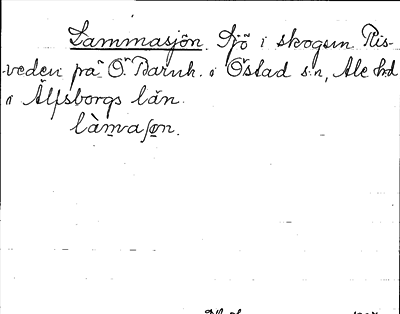 Lammasjön. Sjö i skogen Ris-
veden på Ö. Barnh. i Östad sn, Ale hd
i Älfsborgs län.
làmaʃøn.